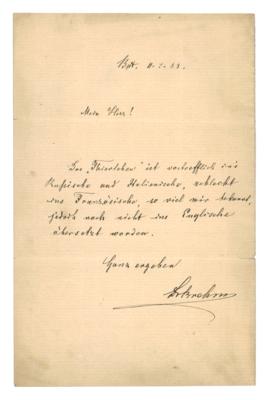 Mein Herr!
Das „Thierleben“ ist vortrefflich ins
Russische und Italienische, schlecht
ins Französische, so viel mir bekannt,
jedoch noch nicht ins Englische
übersetzt worden.
Ganz ergeben
Brehm